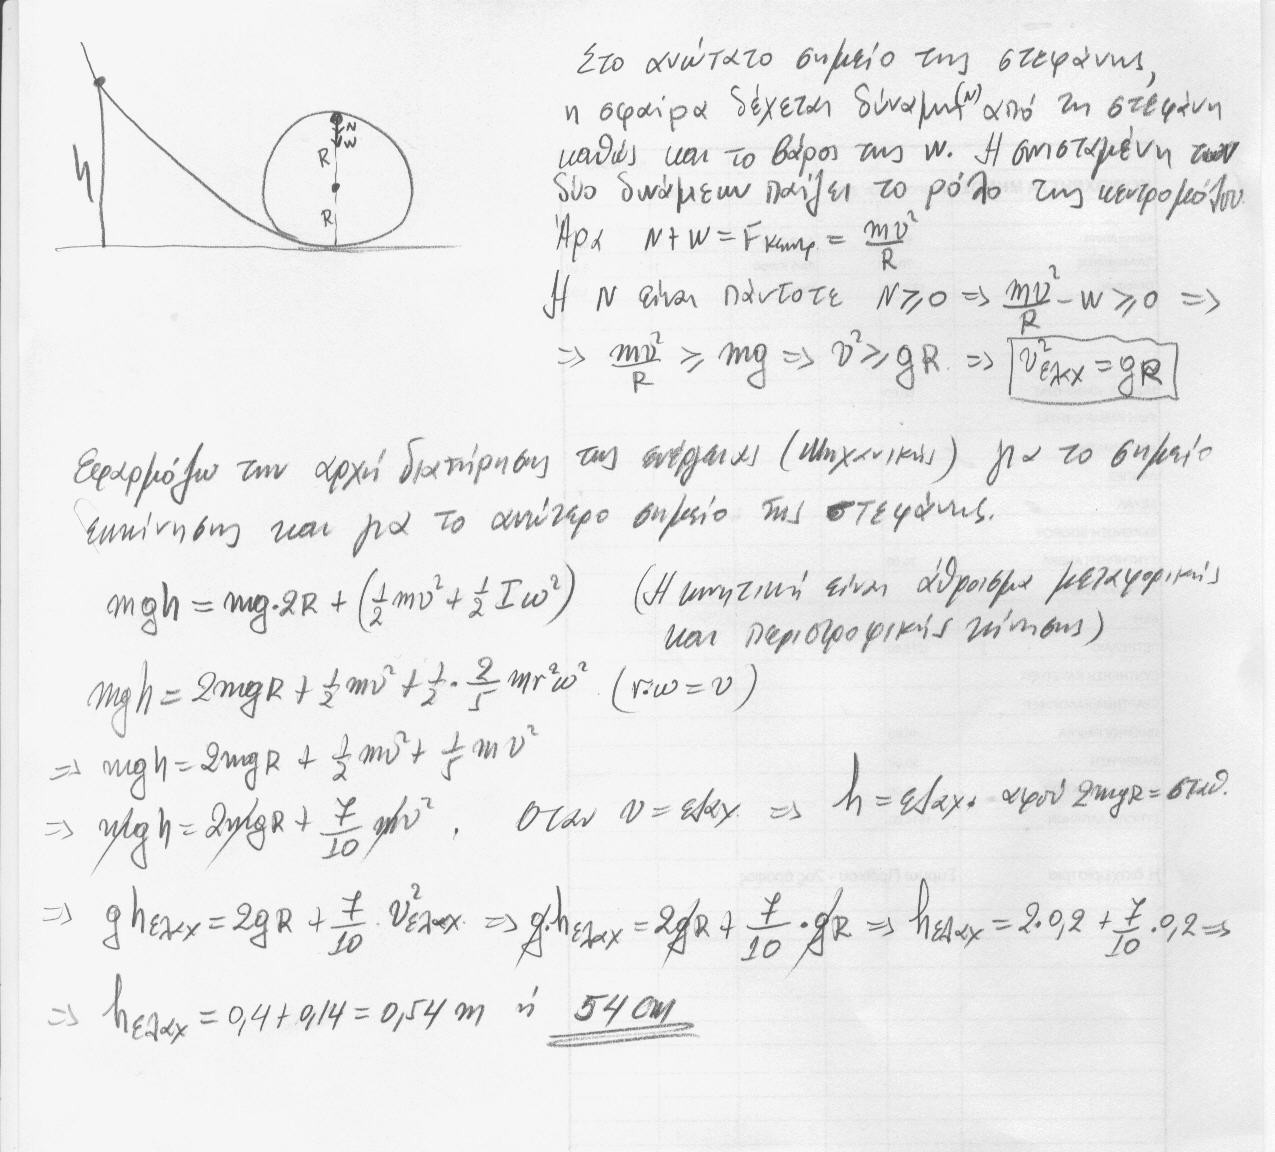 Στο ανώτατο σημείο της στεφάνης,
η σφαίρα δέχεται δύναμη (N) από τη στεφάνη
καθώς και το βάρος της w. Η συνισταμένη των
δύο δυνάμεων παίζει το ρόλο της κεντρομόλου.
Άρα N + W = Fκεντρ. = mv²/R
Η N είναι πάντοτε N ≥ 0 => mv²/R - W ≥ 0 =>
=> mv²/R ≥ mg => v² ≥ gR => v²ελαχ = gR
h
N
W
R
R
Εφαρμόζω την αρχή διατήρησης της ενέργειας (Μηχανικής) για το σημείο
εκκίνησης και για το ανώτερο σημείο της στεφάνης.
mgh = mg·2R + (1/2 mv² + 1/2 Iω²) (Η κινητική είναι άθροισμα μεταφορικής
και περιστροφικής κίνησης)
mgh = 2mgR + 1/2 mv² + 1/2 · 2/5 mr²ω² (r·ω = v)
=> mgh = 2mgR + 1/2 mv² + 1/5 mv²
=> mgh = 2mgR + 7/10 mv², όταν v = ελαχ. => h = ελαχ. αφού 2mgR = σταθ.
=> ghελαχ = 2gR + 7/10 · v²ελαχ. => g·hελαχ = 2gR + 7/10 · gR => hελαχ = 2·0,2 + 7/10 · 0,2 =>
=> hελαχ = 0,4 + 0,14 = 0,54 m ή 54 cm